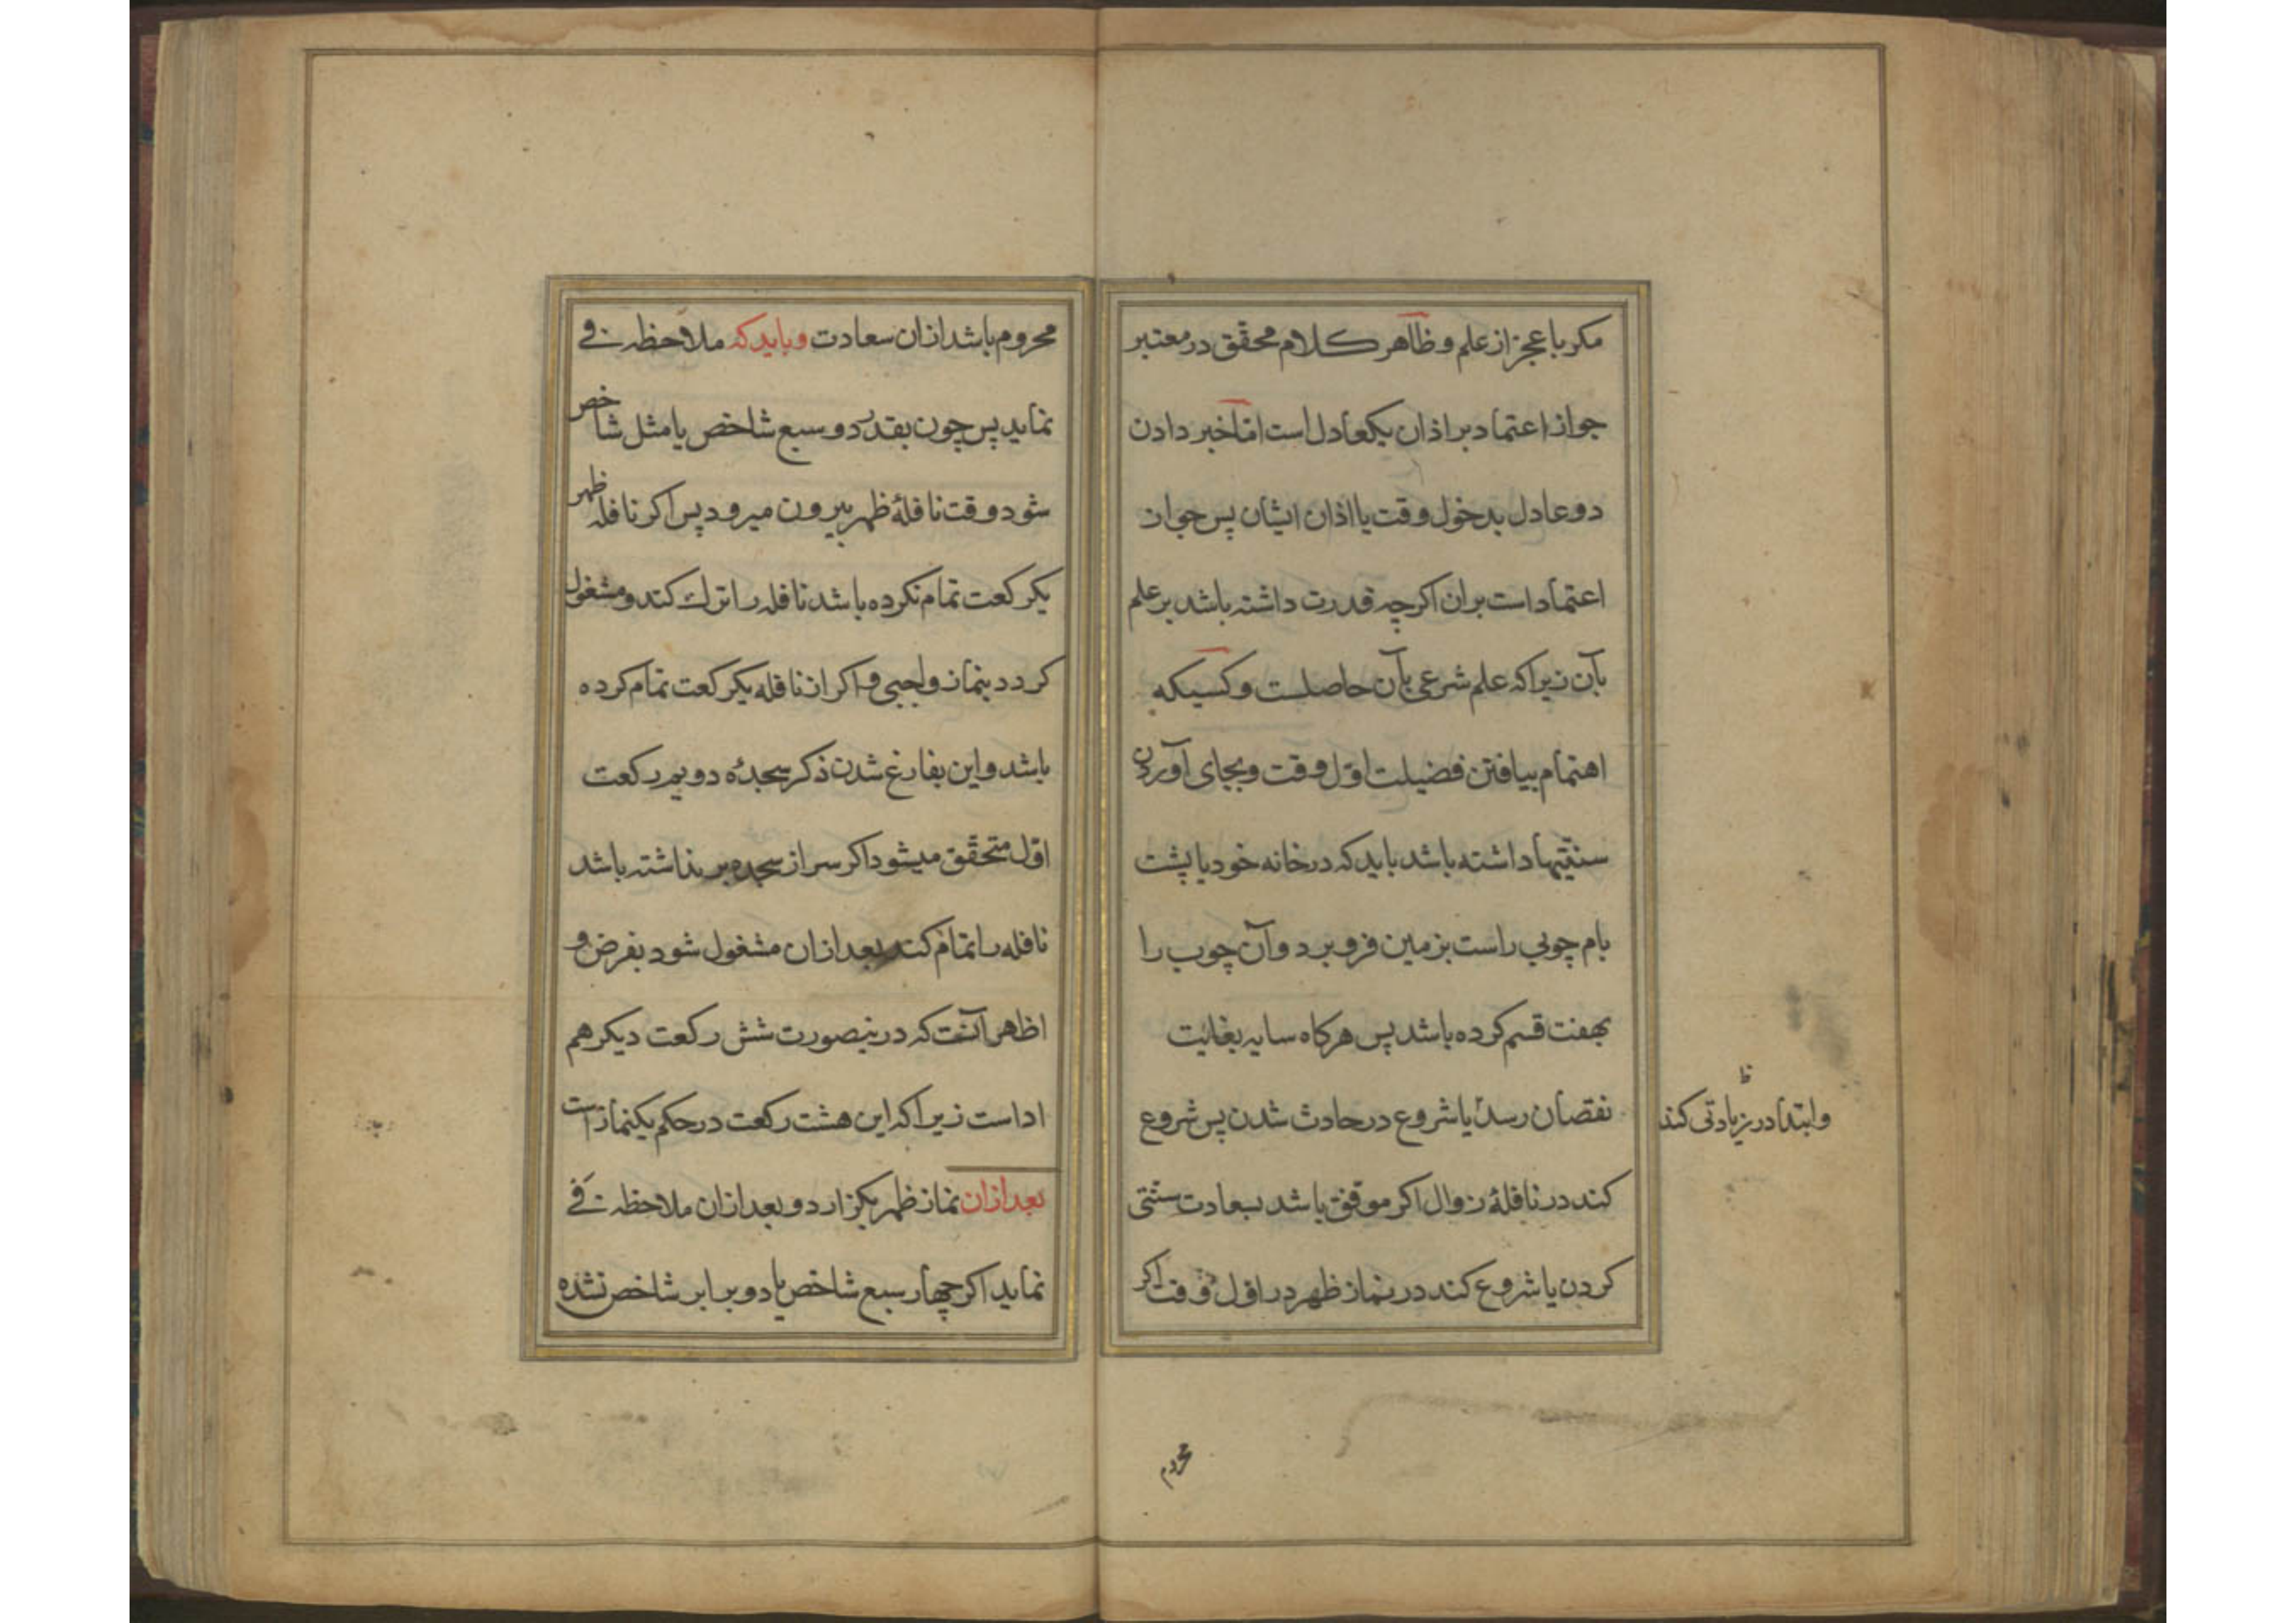 مکر با عجز از علم و ظاهر کلام محقّق در معتبر
جواز اعتماد بر اذان یکعادل است امّا خبر دادن
دو عادل بدخول وقت یا اذان ایشان پس جواز
اعتماد است بران اکرچه قدرت داشته باشد بر علم
بآن زیرا که علم شرعی بآن حاصلست و کسیکه
اهتمام بیافتن فضیلت اوّل وقت و بجای آوردن
سنّتیها داشته باشد باید که در خانه خود یا پشت
بام چوبی راست بزمین فرو برد و آن چوب را
بهفت قسم کرده باشد پس هرکاه سایه بغایت
نقصان رسد یا شروع در حادث شدن پس شروع
وابتدا در زیادتی کند
کند در نافلهٔ زوال اکر موفّق باشد بسعادت سنّتی
کردن یا شروع کند در نماز ظهر در اوّل وقت اکر
محروم
محروم باشد ازان سعادت و باید که ملاحظه فی
نماید پس چون بقدر دو سبع شاخص یا مثل شاخص
شود وقت نافلهٔ ظهر بیرون میرود پس اکر نافله ظهر
یکرکعت تمام نکرده باشد نافله را ترک کند و مشغول
کردد بنماز واجبی و اکر از نافله یکرکعت تمام کرده
باشد و این بفارغ شدن ذکر سجدهٔ دویم رکعت
اوّل متحقّق میشود اکر سر از سجده بر نداشته باشد
نافله را تمام کند بعد ازان مشغول شود بفرض و
اظاهر آنست که درینصورت شش رکعت دیکر هم
ادا ست زیرا که این هشت رکعت در حکم یکنماز است
بعد ازان نماز ظهر بکزارد و بعد ازان ملاحظه فی
نماید اکر چهار سبع شاخص یا دو برابر شاخص نشده